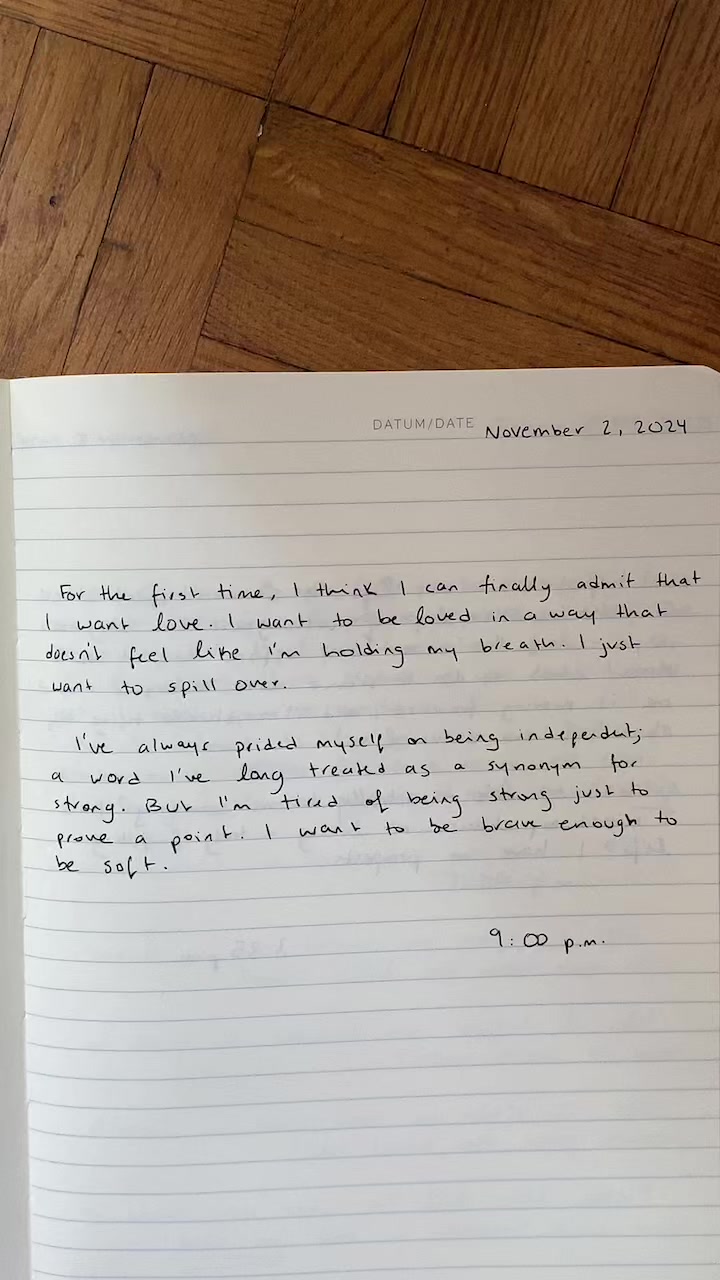 DATUM/DATE November 2, 2024
For the first time, I think I can finally admit that
I want love. I want to be loved in a way that
doesn't feel like I'm holding my breath. I just
want to spill over.
I've always prided myself on being independent;
a word I've long treated as a synonym for
strong. But I'm tired of being strong just to
prove a point. I want to be brave enough to
be soft.
9:00 p.m.